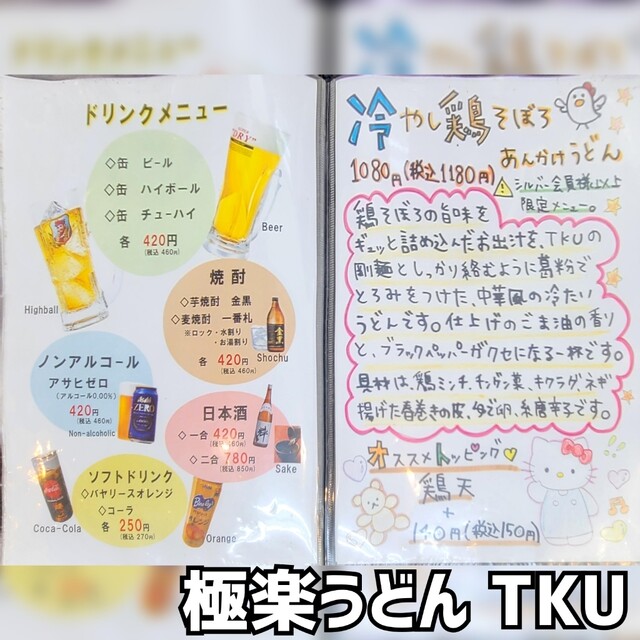 ドリンクメニュー
◇缶 ビール
◇缶 ハイボール
◇缶 チューハイ
各 420円
(税込 460円)
Beer
Highball
焼酎
◇芋焼酎 金黒
◇麦焼酎 一番札
※ロック・水割り
・お湯割り
各 420円
(税込 460円)
Shochu
ノンアルコール
アサヒゼロ
(アルコール0.00%)
420円
(税込 460円)
Non-alcoholic
Asahi
ZERO
日本酒
◇一合 420円
(税込 460円)
◇二合 780円
(税込 850円)
Sake
ソフトドリンク
◇バヤリースオレンジ
◇コーラ
各 250円
(税込 270円)
Coca-Cola
Orange
冷やし鶏そぼろ
あんかけうどん
1080円(税込1180円)
シルバー会員様以上
限定メニュー。
鶏そぼろの旨味を
ギュッと詰め込んだお出汁を、TKUの
剛麺としっかり絡むように葛粉で
とろみをつけた、中華風の冷たい
うどんです。仕上げのごま油の香り
と、ブラックペッパーがクセになる一杯です。
具材は、鶏ミンチ、チンゲン菜、キクラゲ、ネギ
揚げた春巻きの皮、糸唐辛子です。
オススメトッピング
鶏天
+
140円(税込150円)
極楽うどん TKU